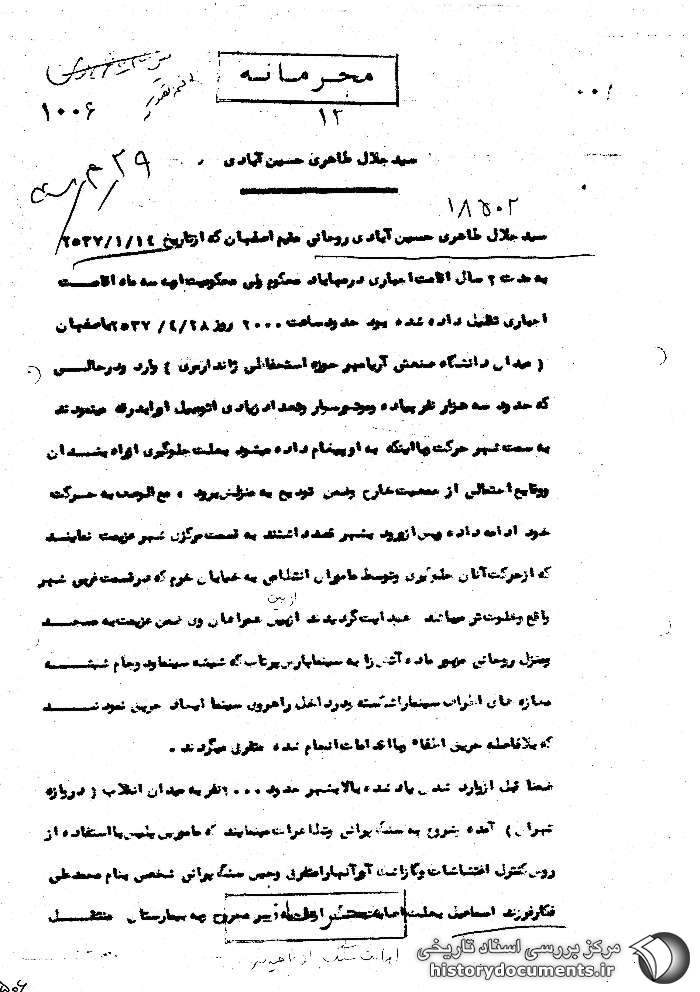 محرمانه
۱۰۰۶
۱۲
سید جلال طاهری حسین آبادی
۱۸۵۰۲
سید جلال طاهری حسین آبادی روحانی مقیم اصفهان که از تاریخ ۲۵۳۷/۱/۱٤
به مدت ۲ سال اقامت اجباری در مهاباد محکوم ولی محکومیت به سه ماه اقامت
اجباری تقلیل داده شده بود حدود ساعت ۲۰۰۰ روز ۲۵۳۷/٤/۲۸ باصفهان
( میدان دانشگاه صنعتی آریامهر حوزه استحفاظی ژاندارمری ) وارد و در حالی
که حدود سه هزار نفر پیاده و موتورسوار و تعداد زیادی اتومبیل او را بدرقه مینمودند
به سمت شهر حرکت و با اینکه به او پیغام داده میشود بعلت جلوگیری از
و وقایع احتمالی از جمعیت خارج و ضمن تودیع به منزلش برود ، مع الوصف به حرکت
خود ادامه داده پس از ورود بشهر قصد داشتند به قسمت مرکزی شهر عزیمت نمایند
که از حرکت آنان جلوگیری و توسط مامورین انتظامی به خیابان خرم که در قسمت غربی شهر
واقع و خلوت تر میباشد هدایت گردیدند از بین همراهان وی ضمن عزیمت به مسجد
از بین
و منزل روحانی مزبور ماده آتش زا به سینما پارس پرتاب که شیشه سینما و در و جام شیشه
مغازه های اطراف سینما را شکسته و در داخل راهروی سینما ایجاد حریق نمودند
که بلافاصله حریق اطفاء و با اقدامات انجام شده متفرق میگردند .
ضمنا قبل از وارد شدن یاد شده بالا بشهر حدود ۲۰۰۰ نفر به میدان انقلاب ( دروازه
تهران ) آمده شروع به سنگ پرانی و تظاهرات مینمایند که مامورین پلیس با استفاده از
روش کنترل اغتشاشات و گاز اشک آور آنها را متفرق و حین سنگ پرانی شخصی بنام محمد علی
فرزند اسماعیل بعلت اصابت مجروح و به بیمارستان منتقل
مرکز بررسی اسناد تاریخی
historydocuments.ir